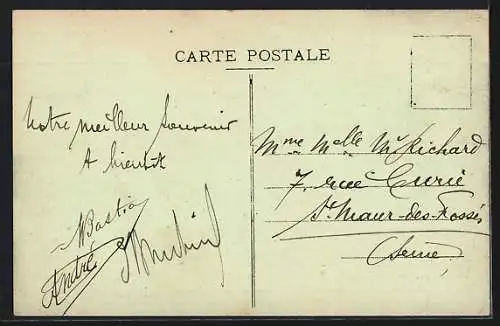 CARTE POSTALE
Notre meilleur souvenir
A bientôt
André
Mme Melle Mr Richard
7, rue Curie
St Maur-des-Fossés
(Seine)